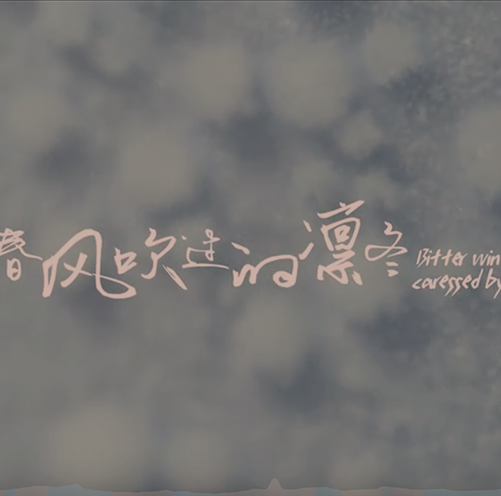 春风吹过的凛冬
Bitter win
caressed by